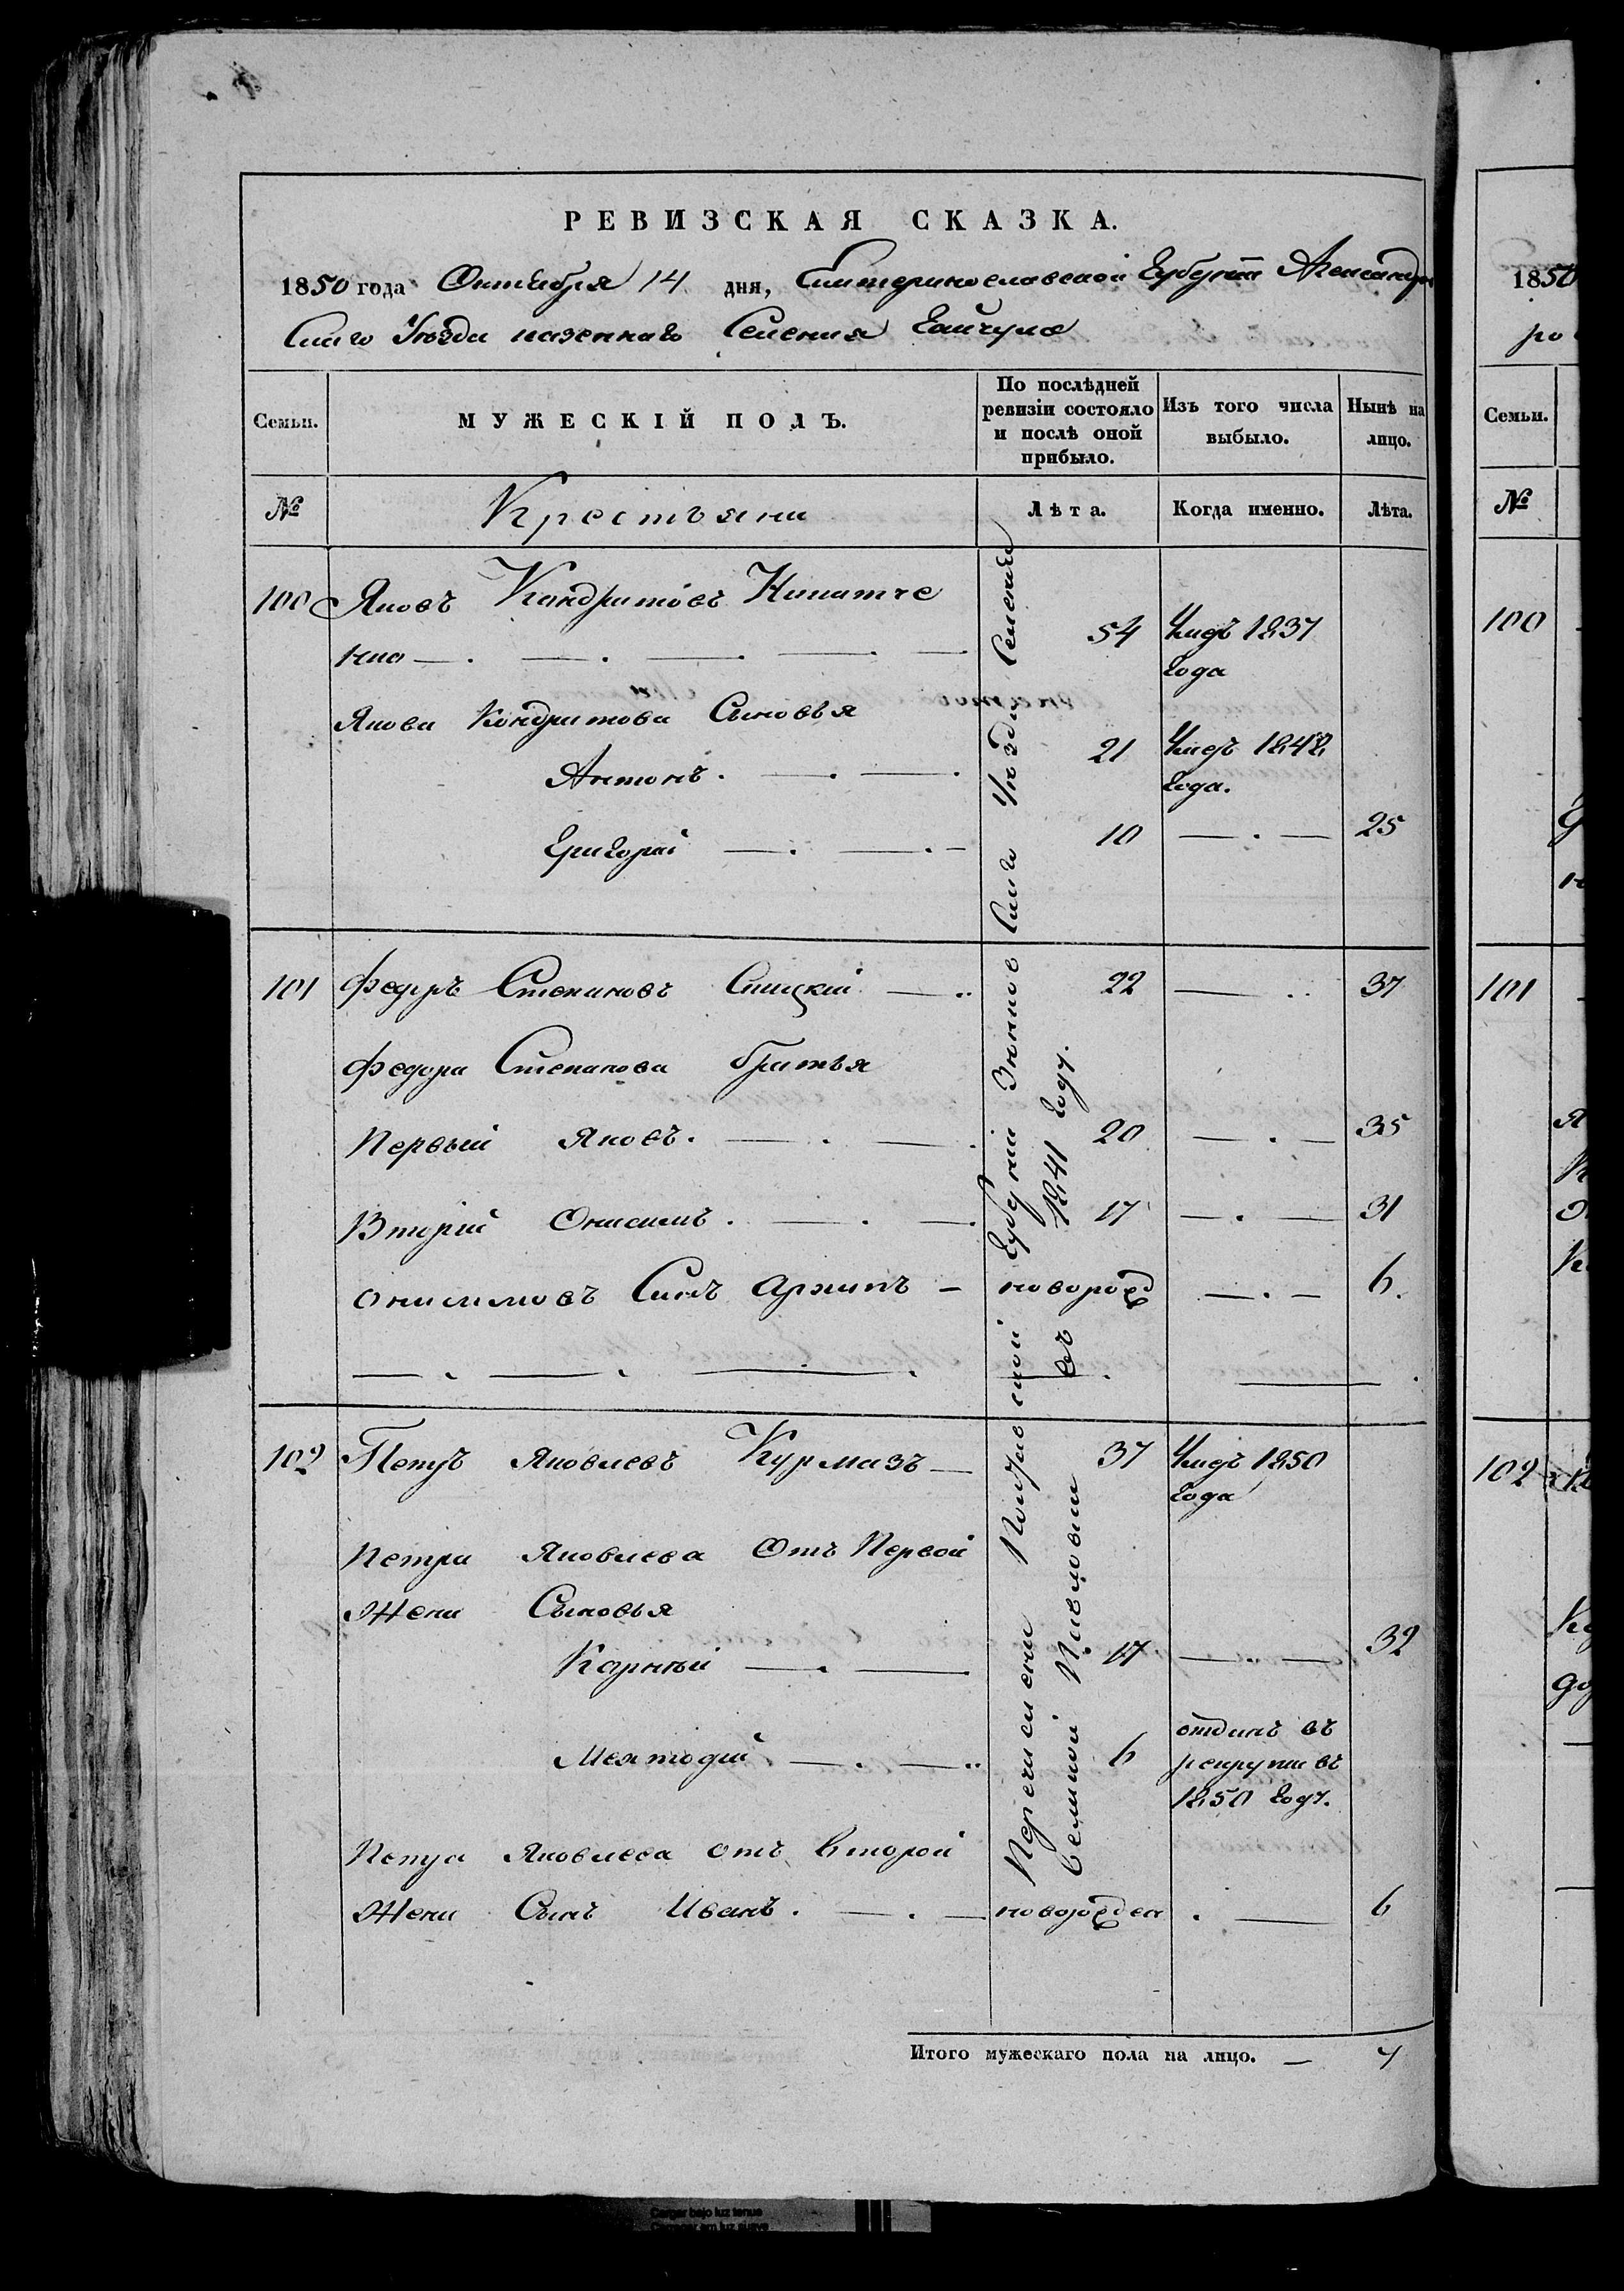 РЕВИЗСКАЯ СКАЗКА.
1850 года Октября 14 дня, Екатеринославской Губерніи Александров
скаго Уѣзда казеннаго Селения Гайчула
Семьи.
МУЖЕСКІЙ ПОЛЪ.
По послѣдней ревизіи состояло и послѣ оной прибыло.
Изъ того числа выбыло.
Нынѣ на лицо.
№
Крестьяни
Лѣта.
Когда именно.
Лѣта.
100 Яковъ Кондратовъ
54 Умеръ 1837 года
Якова Кондратова Сыновья
Антонъ. 21 Умеръ 1848 года.
Григорій 10 25
101 Федоръ Степановъ 22 37
Федора Степанова братья
Первый Яковъ. 20 35
Вторій Онисимъ. 17 31
Онисимовъ Синъ Архипъ новорожд 6.
102 Петръ Яковлевъ Курмазъ 37 Умеръ 1850 года
Петра Яковлева Отъ Первой
Жени Сыновья
Карній 17 32
Мептодій 6 отданъ въ рекруты въ 1850 году.
Петра Яковлева отъ Второй
Жени Сынъ Иванъ. новорожден 6
Перечислени Полтавской Губерніи Зинков скаго Уѣзда Селенія
Павловки въ 1841 году.
Итого мужескаго пола на лицо. 7
1850
Семьи.
№
100
101
102